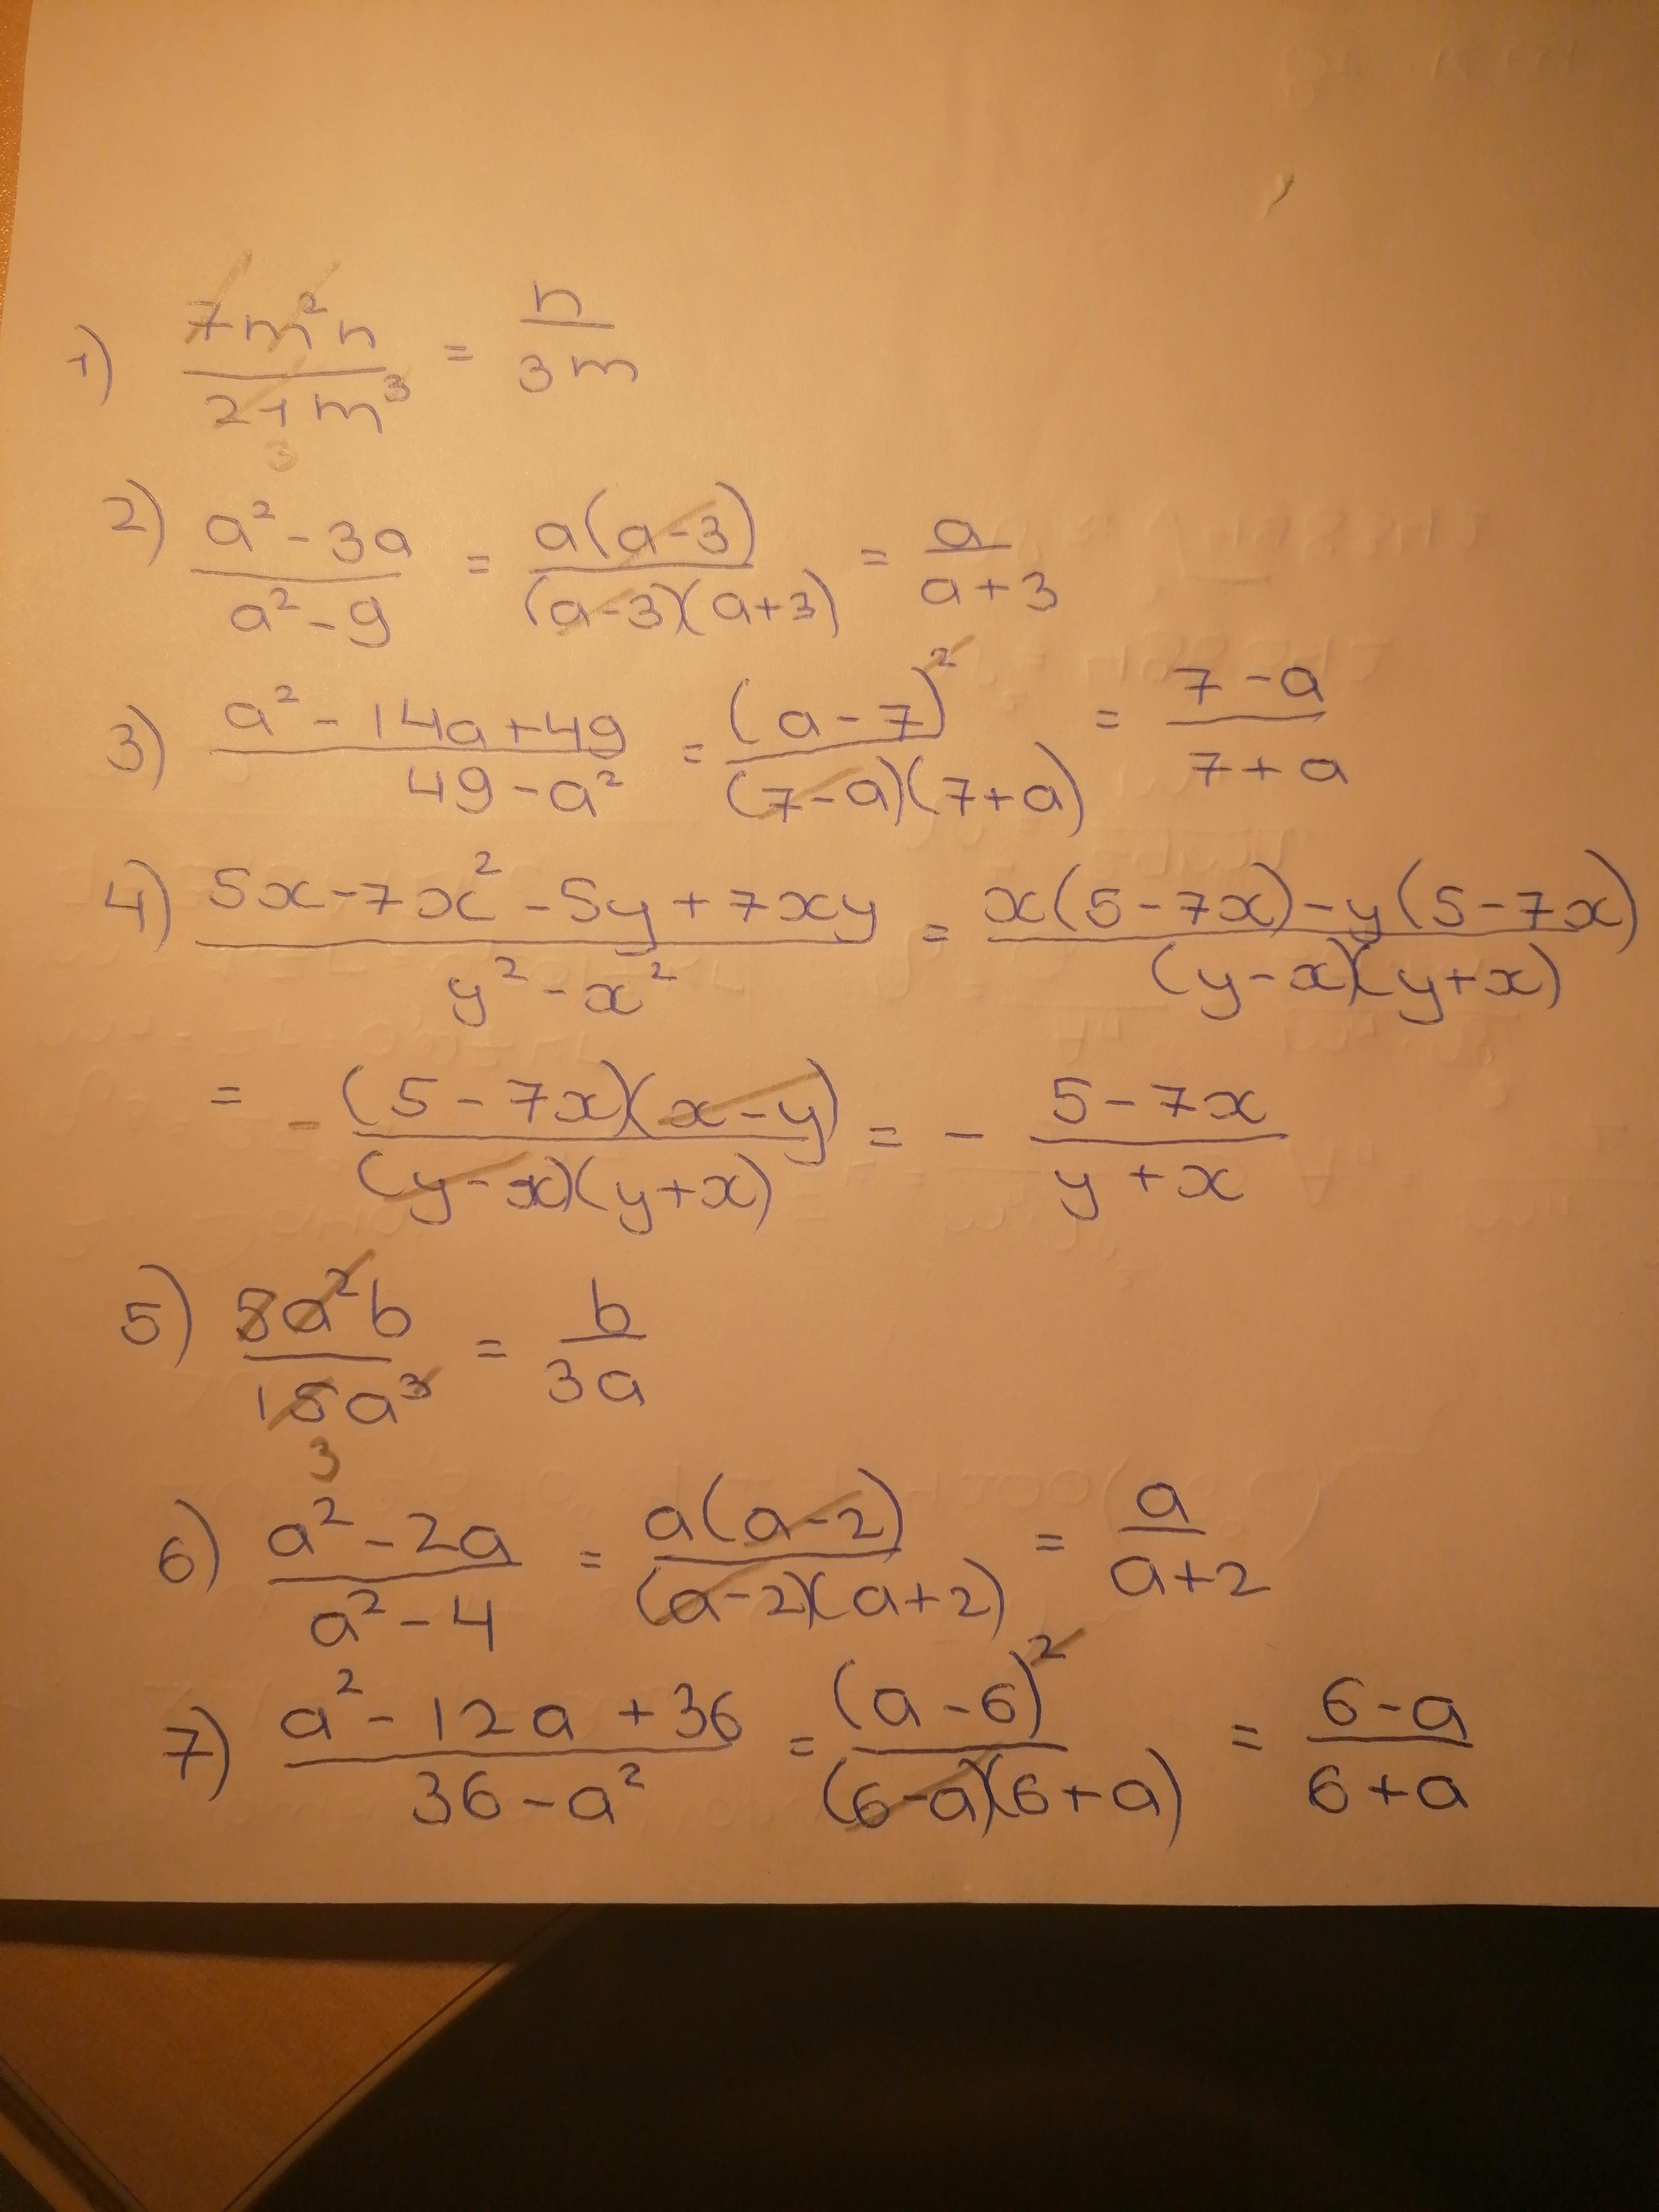 1) 7m²n / 21m³ = n / 3m
3
2) a² - 3a / a² - 9 = a(a-3) / (a-3)(a+3) = a / a+3
3) a² - 14a + 49 / 49 - a² = (a-7)² / (7-a)(7+a) = 7-a / 7+a
4) 5x - 7x² - 5y + 7xy / y² - x² = x(5-7x) - y(5-7x) / (y-x)(y+x)
= - (5-7x)(x-y) / (y-x)(y+x) = - 5-7x / y+x
5) 5a²b / 15a³ = b / 3a
3
6) a² - 2a / a² - 4 = a(a-2) / (a-2)(a+2) = a / a+2
7) a² - 12a + 36 / 36 - a² = (a-6)² / (6-a)(6+a) = 6-a / 6+a